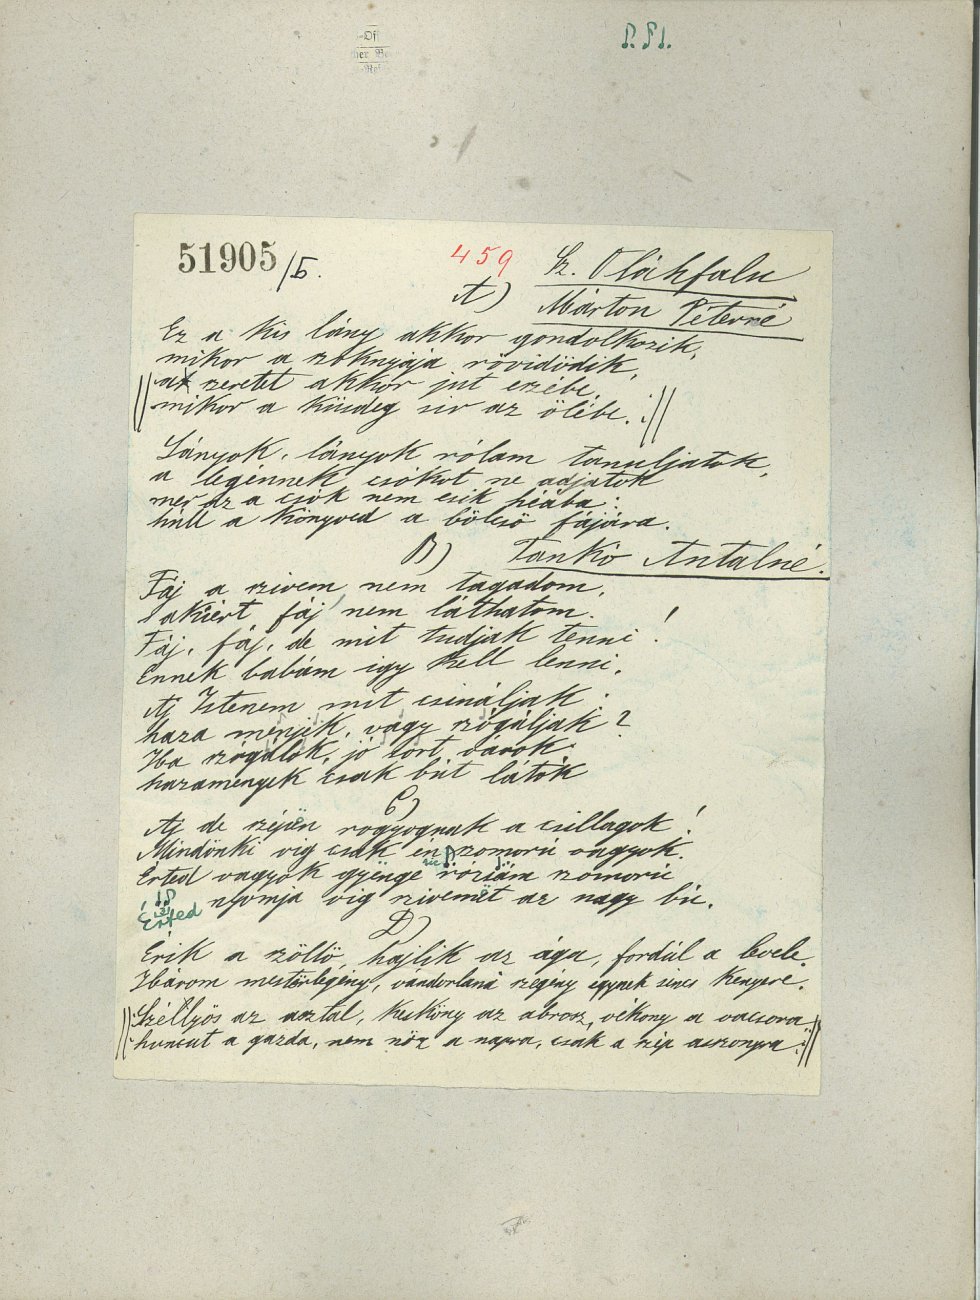 P. Fl.
51905/5.
459
Sz. Oláhfalu
A)
Márton Péterné
Ez a kis lány akkor gondolkozik,
mikor a szoknyája rövidödik,
a szeretet akkor jut eszébe,
mikor a kisdeg sir az ölébe.
Lányok, lányok rólam tanuljatok,
a legénnek csókot ne adjatok
mer az a csók nem esik héába:
húll a könyved a bölcső fájára.
B) Tankó Antalné.
Fáj a szivem nem tagadom,
S akiért fáj nem láthatom.
Fáj, fáj, de mit tudjak tenni!
Ennek babám igy kell lenni.
Aj Istenem mit csináljak:
haza menjek, vagy szógáljak?
Ha szógálok, jó sort várok
hazamenyek csak bút látok
C)
Aj de szépen ragyognak a csillagok!
Mindönki vig csak én szomorú vagyok.
Érted vagyok gyönge rózsám szomorú
nyomja vig szivemet az nagy bú.
Érted
D)
Érik a szöllő, hajlik az ága, fordúl a levele.
Három mesterlegény, vándorlana szegény egynek sincs kenyere.
Széllyös az asztal, kesköny az abrosz, vékony a vacsora
huncut a gazda, nem néz a napra, csak a szép asszonyra